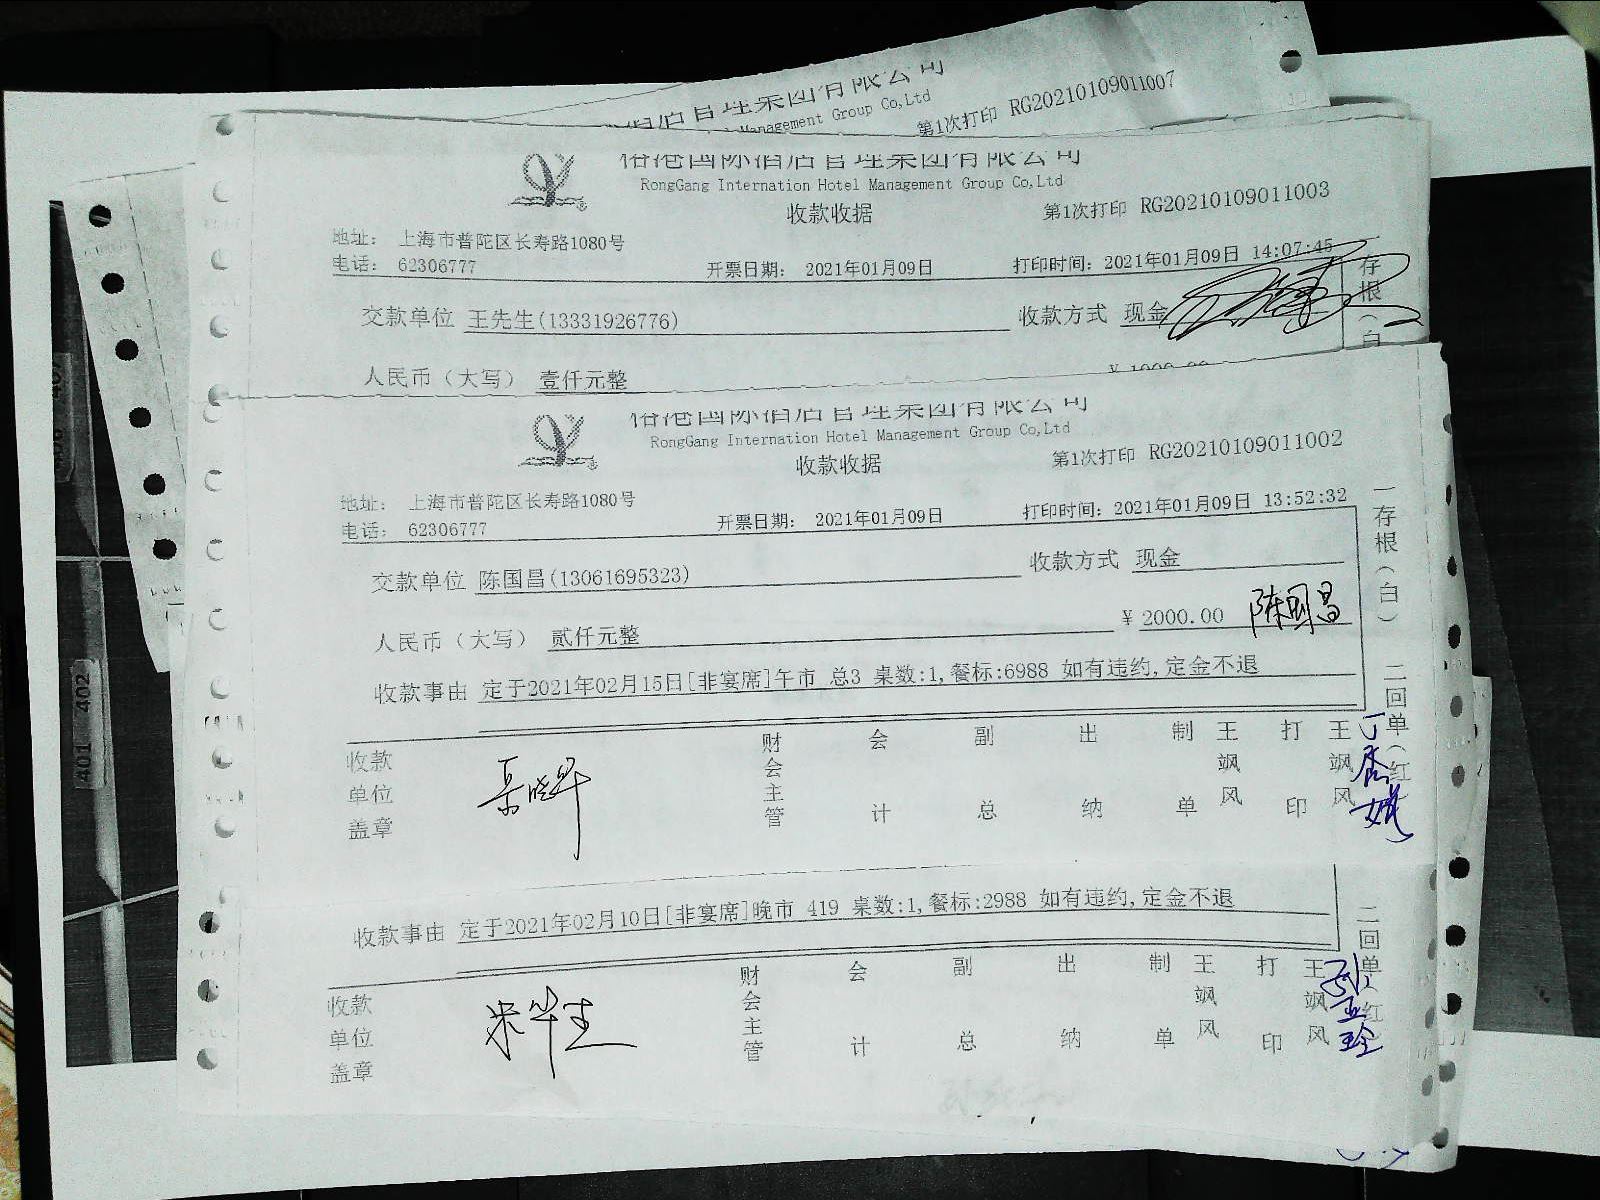 Management Group Co,Ltd
第1次打印 RG20210109011007
国际酒店管理集团有限公司
RongGang Internation Hotel Management Group Co,Ltd
收款收据
第1次打印 RG20210109011003
地址： 上海市普陀区长寿路1080号
电话： 62306777
开票日期： 2021年01月09日
打印时间：2021年01月09日 14:07:45
交款单位 王先生(13331926776)
收款方式 现金
人民币（大写） 壹仟元整
存根（白
国际酒店管理集团有限公司
RongGang Internation Hotel Management Group Co,Ltd
收款收据
第1次打印 RG20210109011002
地址： 上海市普陀区长寿路1080号
电话： 62306777
开票日期： 2021年01月09日
打印时间：2021年01月09日 13:52:32
交款单位 陈国昌(13061695323)
收款方式 现金
人民币（大写） 贰仟元整
¥ 2000.00 陈国昌
收款事由 定于2021年02月15日[非宴席]午市 总3 桌数:1,餐标:6988 如有违约,定金不退
收款单位盖章
财会主管 会计 副总 出纳 制单 王飒风 打印 王飒风
一存根（白） 二回单（红
收款事由 定于2021年02月10日[非宴席]晚市 419 桌数:1,餐标:2988 如有违约,定金不退
收款单位盖章
财会主管 会计 副总 出纳 制单 王飒风 打印 王飒风
二回单（红
401 402